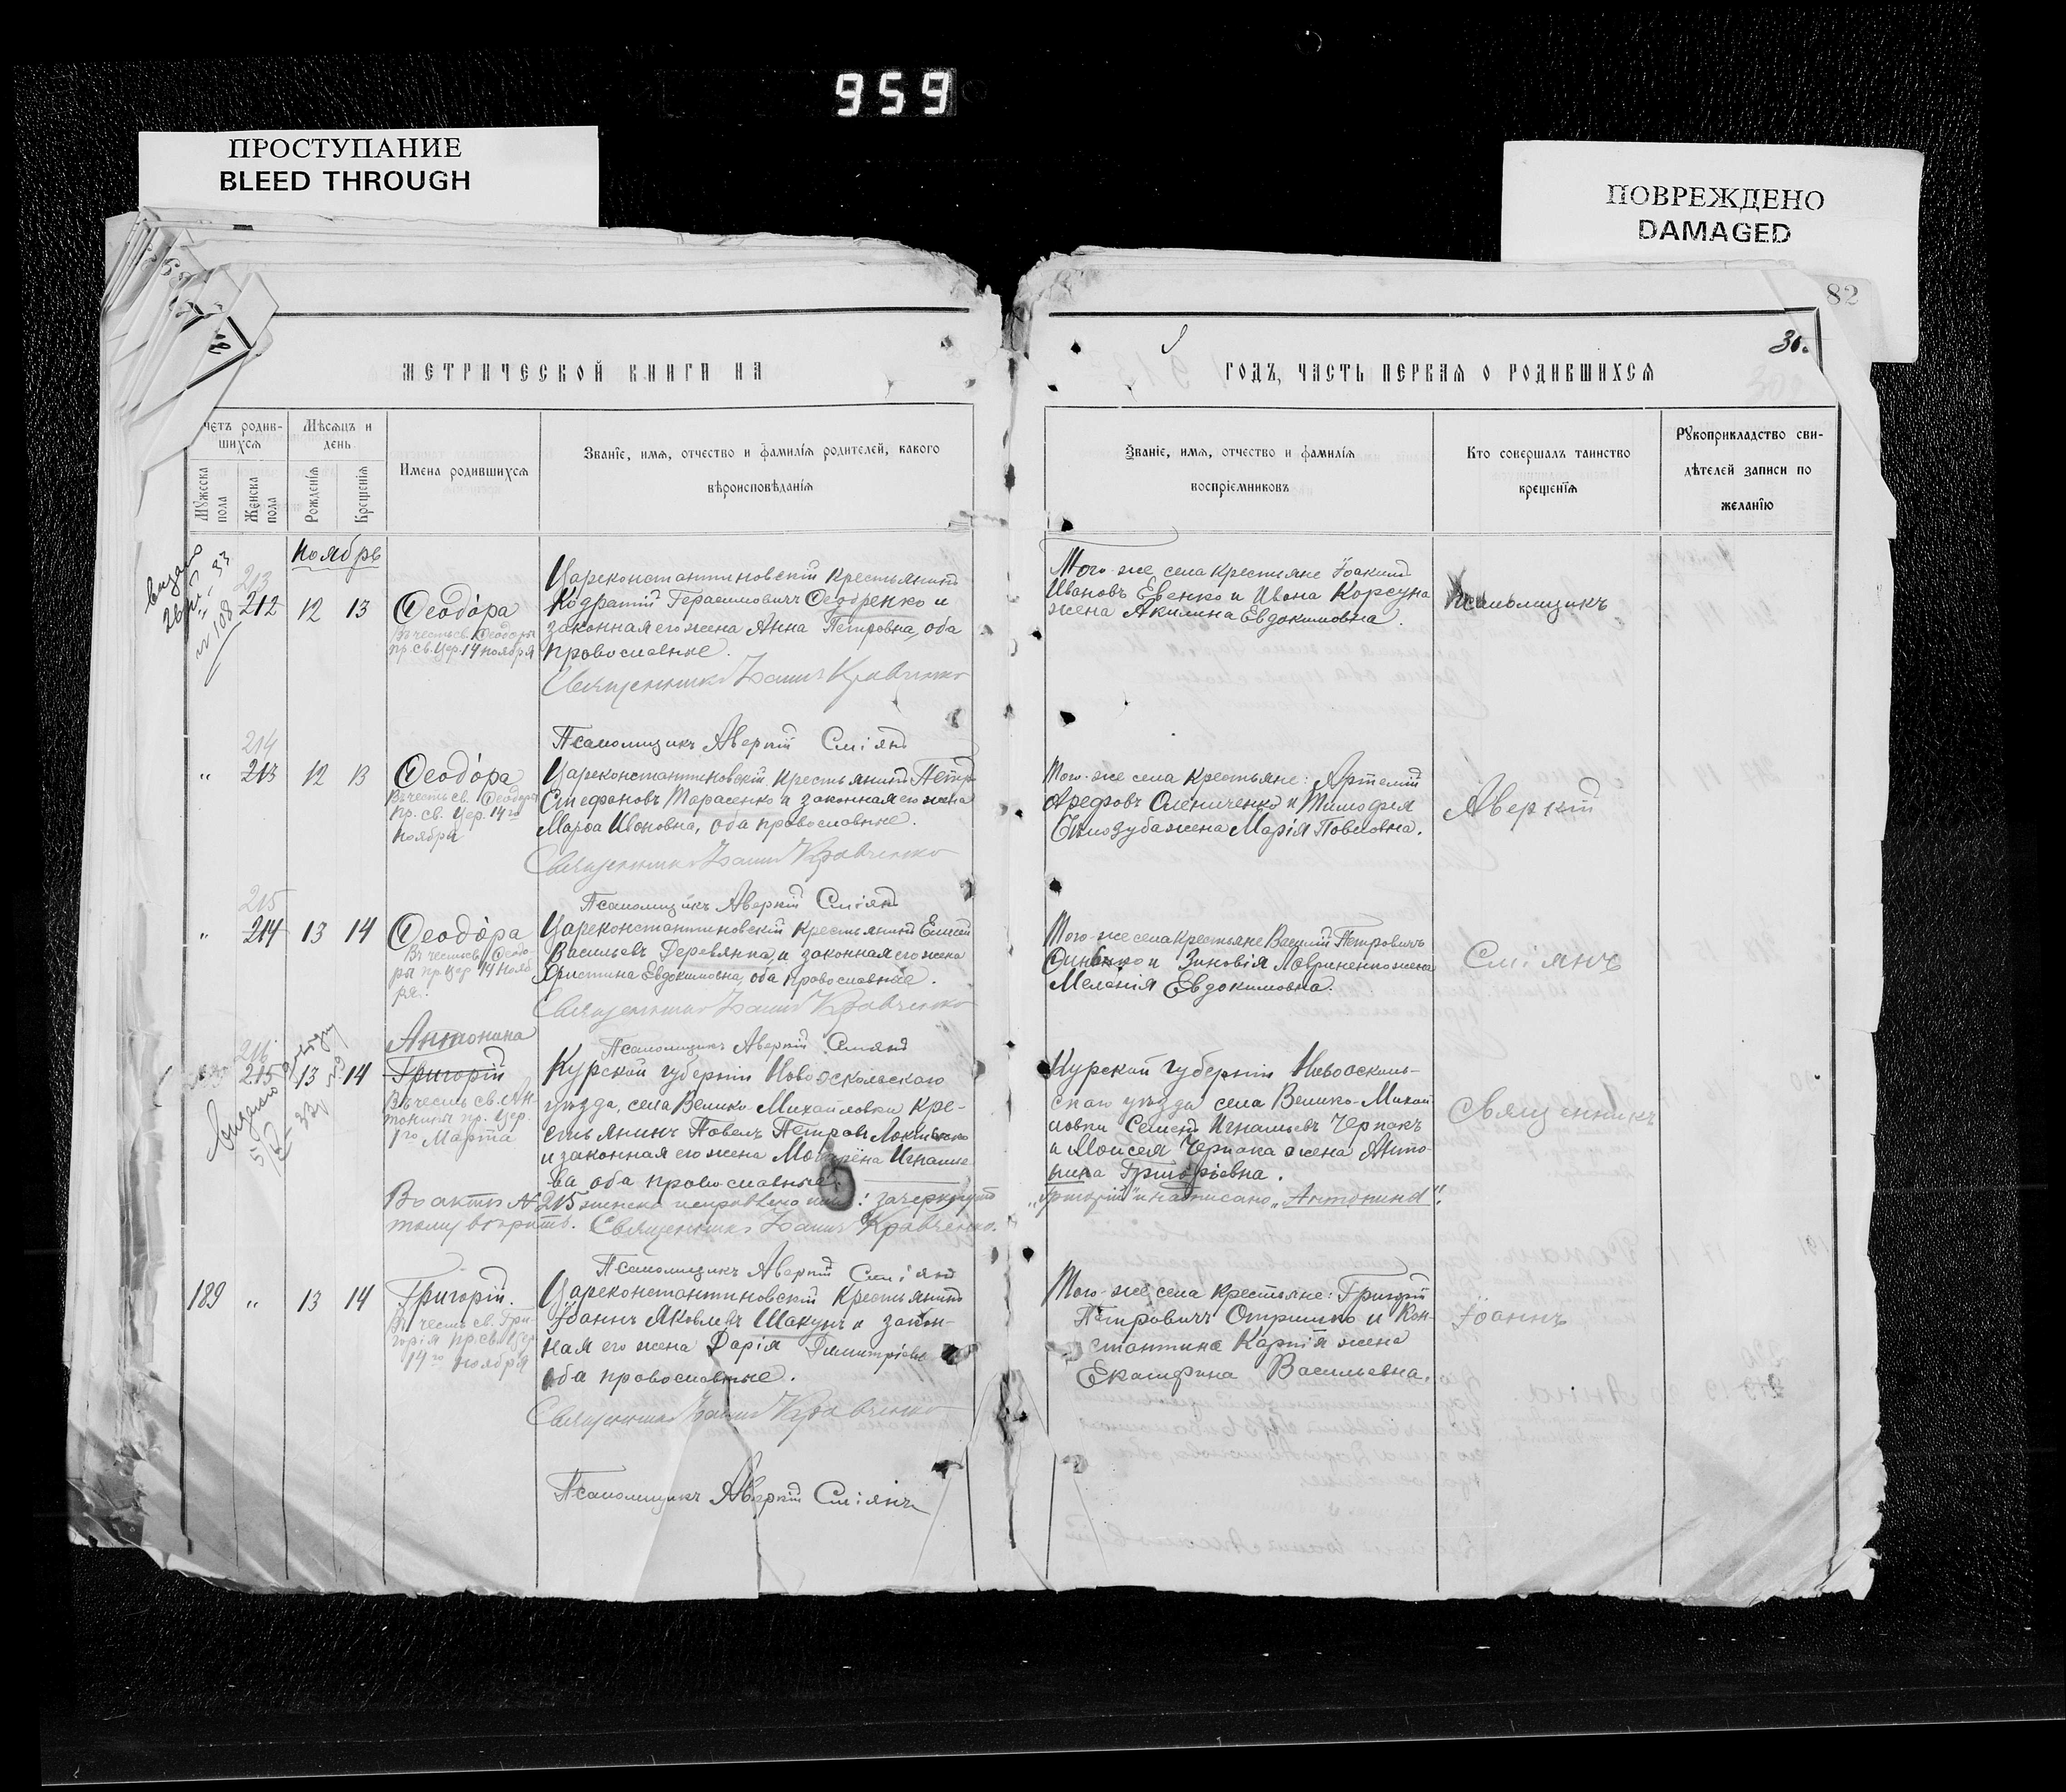 959
ПРОСТУПАНИЕ
BLEED THROUGH
ПОВРЕЖДЕНО
DAMAGED
82
30.
МЕТРИЧЕСКОЙ КНИГИ НА
ГОДЪ, ЧАСТЬ ПЕРВАЯ О РОДИВШИХСЯ
четъ родив-
шихся
Мужеска пола
Женска пола
Мѣсяцъ и
день
Рожденія
Крещенія
Имена родившихся
Званіе, имя, отчество и фамилія родителей, какого
вѣроисповѣданія
Званіе, имя, отчество и фамилія
воспріемниковъ
Кто совершалъ таинство
крещенія
Рукоприкладство сви-
дѣтелей записи по
желанію
Ноябрь
213
212 12 13
Ѳеодо́ра
Въ честь св. Ѳеодоры
пр. св. Цер. 14 ноября
Цареконстантиновскій крестьянинъ
Кодратій Герасимовичъ Ѳеодоренко и
законная его жена Анна Петровна, оба
православные.
Священникъ Іоаннъ Кравченко
Псаломщикъ Аверкій Сміянъ
Того-же села крестьяне Іоакимъ
Ивановъ Евенко и Ивана Корсуна
жена Акилина Евдокимовна.
Псаломщикъ
214
" 213 12 13
Ѳеодо́ра
Въ честь св. Ѳеодоры
пр. св. Цер. 14го
ноября
Цареконстантиновскій крестьянинъ Петръ
Стефановъ Тарасенко и законная его жена
Марѳа Ивановна, оба православные.
Священникъ Іоаннъ Кравченко
Псаломщикъ Аверкій Сміянъ
Того-же села крестьяне: Артемій
Арефовъ Олениченко и Тимофея
жена Марія Павловна.
Аверкій
215
" 214 13 14
Ѳеодо́ра
Въ честь св. Ѳеодо-
ры пр. Цер. 14 нояб-
ря.
Цареконстантиновскій крестьянинъ Елисей
Васильевъ Деревянка, и законная его жена
Христина Евдокимовна, оба православные.
Священникъ Іоаннъ Кравченко
Псаломщикъ Аверкій Сміянъ
Того-же села крестьяне Василій Петровичъ
и Зиновія Лавриненко жена
Меланія Евдокимовна.
Сміянъ
216
215 13 14
Антонина
Григорій
Въ честь св. Ан-
тонины пр. Цер.
1го Марта
Курской губерніи Новооскольскаго
уѣзда, села Велико-Михайловки кре-
стьянинъ Павелъ Петровъ
и законная его жена Игнатіе-
ва оба православные.
Въ актѣ № 215 женска исправлено зачеркнуто
„Григорій" и надписано „Антонина".
тому вѣрить. Священникъ Іоаннъ Кравченко.
Псаломщикъ Аверкій Сміянъ
Курской губерніи Новоосколь-
скаго уѣзда села Велико-Михай-
ловки Семенъ Игнатьевъ Черпакъ
и Моисея Черпака жена Анто-
нина Григорьевна.
Священникъ
189 " 13 14
Григорій.
Въ честь св. Гри-
горія пр. св. Цер.
14го ноября
Цареконстантиновскій крестьянинъ
Іоаннъ Яковлевъ Шакунъ и закон-
ная его жена Дарія Димитріева
оба православные.
Священникъ Іоаннъ Кравченко
Псаломщикъ Аверкій Сміянъ
Того-же села крестьяне: Григорій
Петровичъ Отришко и Кон-
стантина Карпія жена
Екатерина Васильевна.
Іоаннъ